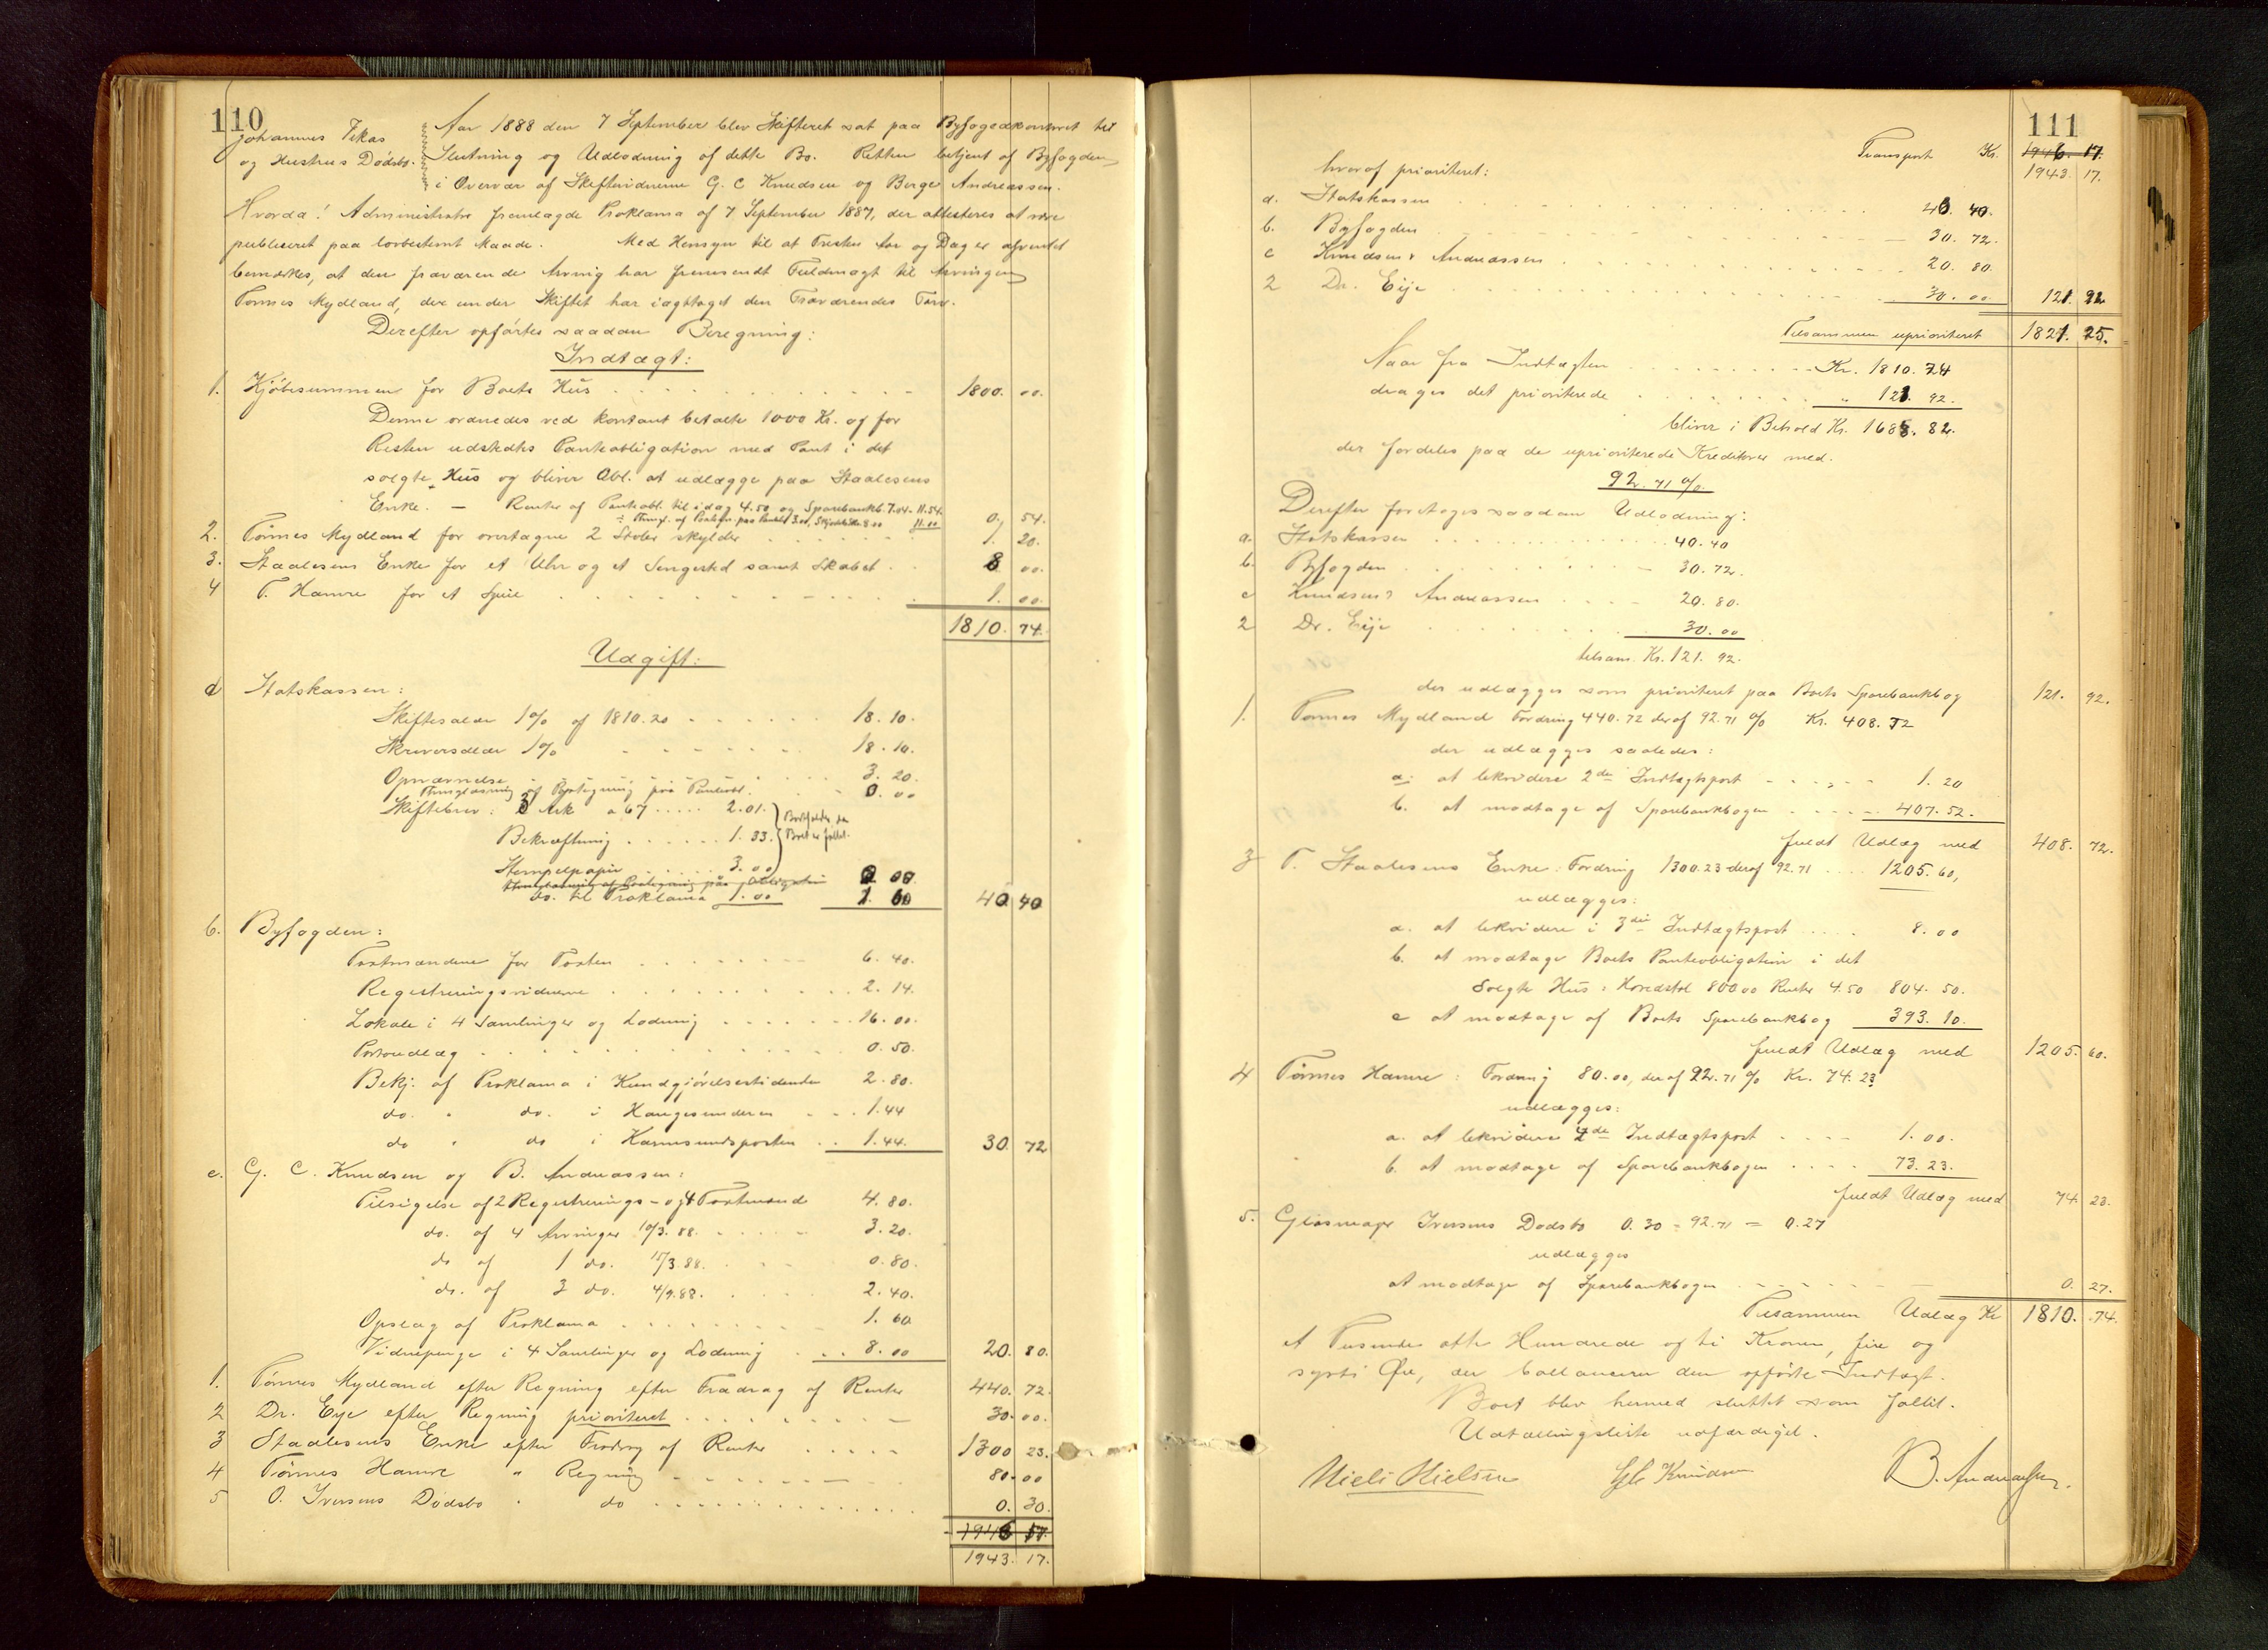 110
Johannes Vikas
og Hustrus Dødsbo.
Aar 1888 den 7 September blev Skifteret sat paa Byfogedkontoret til
Slutning og Udlodning af dette Bo. Retten betjent af Byfogden
i Overvær af Skiftevidnerne G. C Knudsen og Børge Andreassen.
Hvorda! Administrator fremlagde Proklama af 7 September 1887, der attesteres at være
publiceret paa lovbestemt Maade. Med Hensyn til at Fristen Aar og Dag er afventet
bemærkes, at den fraværende Arving har fremsendt Fuldmagt til Arvingen
Tønnes Mydland, der under Skiftet har iagttaget den Fraværendes Tarv.
Derefter opførtes saadan Beregning:
Indtægt:
1. Kjøbesummen for Boets Hus . . . 1800. 00.
Denne ordnedes ved kontant betalte 1000 Kr. og for
Resten udstedtes Panteobligation med Pant i det
solgte Hus og bliver Obl. at udlægge paa Staalesens
Enke. — Renter af Panteobl. til idag 4.50 og Sparebankb. 7.04 = 11.54
÷ Thingl. af Paategn. paa Panteobl 3.00, 8.00 11.00 0, 54.
2. Tønnes Mydland for overtagne 2 Stoler skylder . . . 1. 20.
3. Staalesens Enke for et Uhr og et Sengested samt Skabet . . 8 00.
4 T. Hamre for et Speil . . . 1. 00.
1810. 74.
Udgift:
a Statskassen:
Skiftesalær 1% af 1810.20 . . . 18. 10.
Skriversalær 1% . . . 18. 10.
Opnævnelse . . . 3. 20.
Thinglæsning af Paategning paa Panteobl. . . 0. 00
Skiftebrev: 3 Ark a 67 . . . 2.01.
Bekræftning . . . 1. 33. } Bortfalder da Boet er fallit.
Stempelpapir . . . 3.00
Thinglæsning af Paategning paa Obligation 0 00.
do. til Proklama 1.00 1. 60 40 40
b. Byfogden:
Taxtmændene for Taxten . . . 6. 40.
Registreringsvidnerne . . . 2. 14.
Lokale i 4 Samlinger og Lodning . . . 16. 00.
Portoudlæg . . . 0. 50.
Bekj. af Proklama i Kundgjørelsestidende 2. 80.
do. " do. i Haugesunderen . . . 1. 44
do " do i Karmsundsposten . . 1. 44. 30. 72
c. G. C. Knudsen og B. Andreassen:
Tilsigelse af 2 Registrerings- og 4 Taxtmænd 4. 80.
do. af 4 Arvinger 10/3. 88. . . . 3. 20.
do af 1 do. 15/3 88. . . . 0. 80.
do. af 3 do. 4/9. 88. . . . 2. 40.
Opslag af Proklama . . . 1. 60
Vidnepenge i 4 Samlinger og Lodning . . . 8. 00 20. 80.
1. Tønnes Mydland efter Regning efter Fradrag af Renter 440. 72.
2 Dr. Eye efter Regning prioriteret . . . 30. 00.
3 Staalesens Enke efter Fradrag af Renter . . . 1300 23.
4 Tønnes Hamre " Regning . . . 80. 00
5 O. Iversens Dødsbo " do . . . 0. 30.
1946 17.
1943. 17.
111
Transport Kr. 1946. 17.
1943. 17.
hvoraf prioriteret:
a. Statskassen . . . 40. 40.
b. Byfogden . . . 30. 72.
c Knudsen & Andreassen . . . 20. 80.
2 Dr. Eije . . . 30. 00. 121. 92
Tilsammen uprioriteret 1821. 25.
Naar fra Indtægten . . . Kr. 1810. 74
drages det prioriterede . . . " 121. 92.
bliver i Behold Kr. 1688. 82.
der fordeles paa de uprioriterede Kreditorer med.
92. 71 %.
Derefter foretoges saadan Udlodning:
a. Statskassen . . . 40. 40
b. Byfogden . . . 30. 72.
c Knudsen & Andreassen . . . 20. 80.
2 Dr. Eije . . . 30. 00
tilsam. Kr. 121. 92.
der udlægges som prioriteret paa Boets Sparebankbog 121. 92.
1. Tønnes Mydland Fordring 440.72 deraf 92.71 % Kr. 408. 72
der udlægges saaledes:
a. at likvidere 2den Indtægtspost . . . 1. 20
b. at modtage af Sparebankbogen . . . 407. 52.
fuldt Udlæg med 408. 72.
3 T. Staalesens Enke: Fordring 1300.23 deraf 92.71 . . . 1205. 60,
udlægges:
a. at likvidere i 3die Indtægtspost . . . 8. 00
b. at modtage Boets Panteobligation i det
Solgte Hus: Hovedstol 800 00 Renter 4.50 804. 50.
c at modtage af Boets Sparebankbog 393. 10.
fuldt Udlæg med 1205. 60.
4 Tønnes Hamre: Fordring 80.00, deraf 92.71 % Kr. 74. 23
udlægges:
a. at likvidere 4de Indtægtspost . . . 1. 00.
b. at modtage af Sparebankbogen . . . 73. 23.
fuldt Udlæg med 74. 23.
5. Glasmager Iversens Dødsbo 0.30 = 92.71 = 0.27
udlægges
at modtage af Sparebankbogen . . . 0. 27.
Tilsammen Udlæg Kr 1810. 74.
et Tusinde otte Hundrede og ti Kroner, fire og
sytti Øre, der ballancerer den opførte Indtægt.
Boet blev hermed sluttet som fallit.
Udtællingsliste udfærdiget.
Niels Nielsen GC Knudsen B. Andreassen.